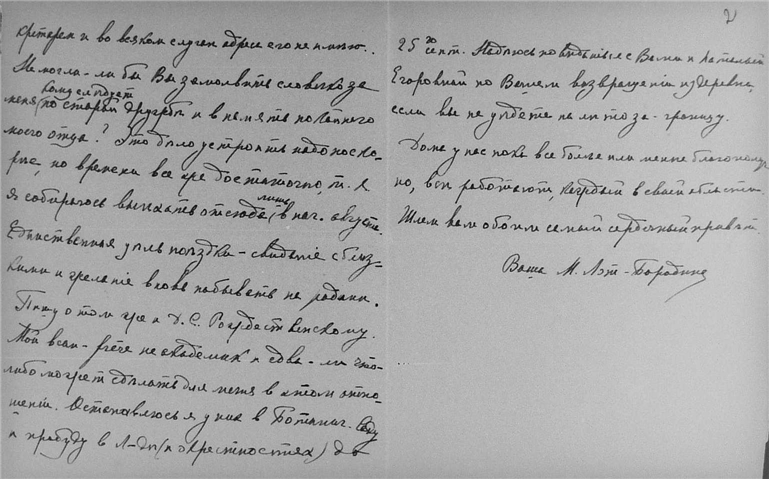 кретарем и во всяком случаи адреса его не имею..
Не могли-ли бы Вы замолвить словечко за
кому следует
меня, по старой дружбе и в память покойного
моего отца? Это дело устроить надо поско-
рее, но времени все же достаточно, т. к.
лишь
я собираюсь выехать отсюда в нач. августа.
Единственная цѣль поѣздки - свидание с близ-
кими и желание вновь побывать на родине.
Пишу о том же и Д. С. Рождественскому.
Мой beau-frère не академик и едва-ли что-
либо может сдѣлать для меня в этом отно-
шении. Остановлюсь я у них в Ботанич. Саду
и пробуду в Л-де (и окрестностях) до
2
25го сент. Надѣюсь повидаться с Вами и Натальей
Егоровной по Вашем возвращении из деревни,
если вы не уѣдете на лѣто за-границу.
Дома у нас пока все более или менее благополуч-
но, все работают, каждый в своей области.
Шлем вам обоим самый сердечный привѣт.
Ваша М. Лот-Бородина